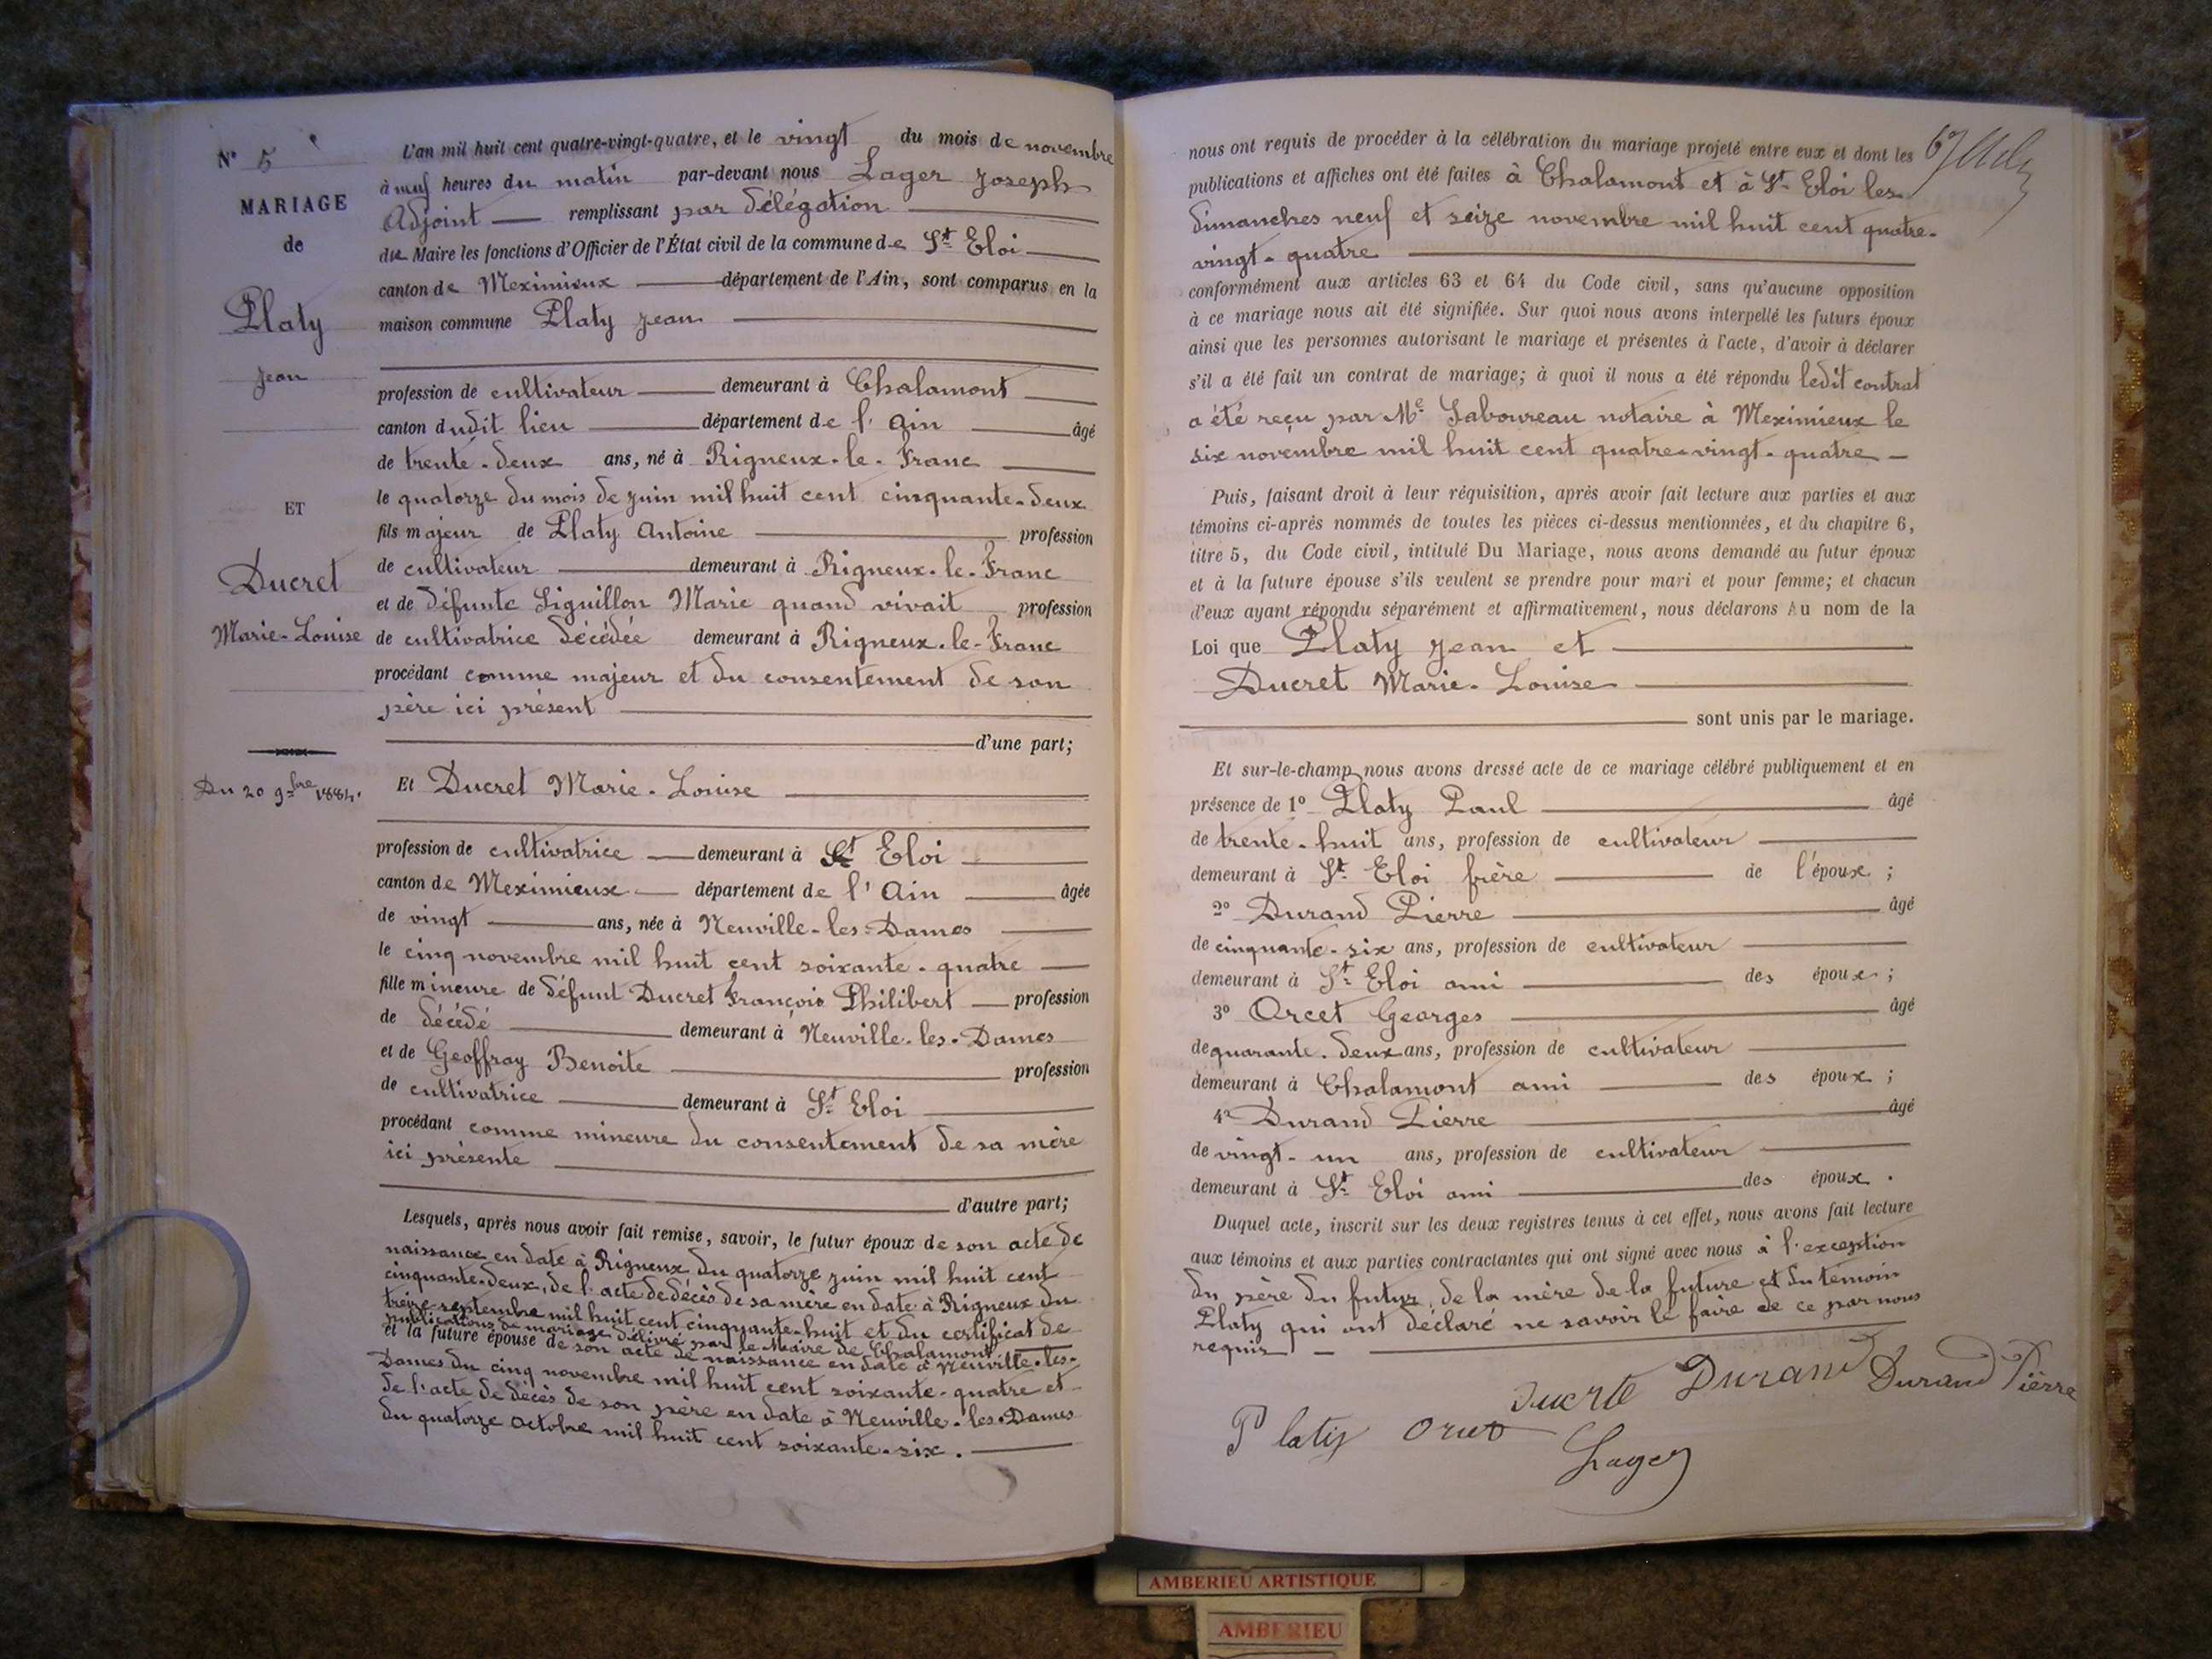 N° 5
MARIAGE
de
Platy
Jean
ET
Ducret
Marie-Louise
Du 20 9bre 1884.
L'an mil huit cent quatre-vingt-quatre, et le vingt du mois de novembre
à neuf heures du matin par-devant nous Lager Joseph
Adjoint remplissant par délégation
du Maire les fonctions d'Officier de l'État civil de la commune de St Eloi
canton de Meximieux département de l'Ain, sont comparus en la
maison commune Platy Jean
profession de cultivateur demeurant à Chalamont
canton dudit lieu département de l'Ain âgé
de trente-deux ans, né à Rigneux-le-Franc
le quatorze du mois de juin mil huit cent cinquante-deux
fils majeur de Platy Antoine profession
de cultivateur demeurant à Rigneux-le-Franc
et de défunte Liguillon Marie quand vivait profession
de cultivatrice décédée demeurant à Rigneux-le-Franc
procédant comme majeur et du consentement de son
père ici présent
d'une part;
Et Ducret Marie-Louise
profession de cultivatrice demeurant à St Eloi
canton de Meximieux département de l'Ain âgée
de vingt ans, née à Neuville-les-Dames
le cinq novembre mil huit cent soixante-quatre
fille mineure de défunt Ducret François Philibert profession
de décédé demeurant à Neuville-les-Dames
et de Geoffray Benoite profession
de cultivatrice demeurant à St Eloi
procédant comme mineure du consentement de sa mère
ici présente
d'autre part;
Lesquels, après nous avoir fait remise, savoir, le futur époux de son acte de
naissance en date à Rigneux du quatorze juin mil huit cent
cinquante-deux, de l'acte de décès de sa mère en date à Rigneux du
treize septembre mil huit cent cinquante-huit et du certificat de
publications de mariage délivré par le Maire de Chalamont
et la future épouse de son acte de naissance en date à Neuville-les-
Dames du cinq novembre mil huit cent soixante-quatre et
de l'acte de décès de son père en date à Neuville-les-Dames
du quatorze octobre mil huit cent soixante-six.
nous ont requis de procéder à la célébration du mariage projeté entre eux et dont les
publications et affiches ont été faites à Chalamont et à St Eloi les
dimanches neuf et seize novembre mil huit cent quatre-
vingt-quatre
conformément aux articles 63 et 64 du Code civil, sans qu'aucune opposition
à ce mariage nous ait été signifiée. Sur quoi nous avons interpellé les futurs époux
ainsi que les personnes autorisant le mariage et présentes à l'acte, d'avoir à déclarer
s'il a été fait un contrat de mariage; à quoi il nous a été répondu ledit contrat
a été reçu par Me Laboureau notaire à Meximieux le
six novembre mil huit cent quatre-vingt-quatre
Puis, faisant droit à leur réquisition, après avoir fait lecture aux parties et aux
témoins ci-après nommés de toutes les pièces ci-dessus mentionnées, et du chapitre 6,
titre 5, du Code civil, intitulé Du Mariage, nous avons demandé au futur époux
et à la future épouse s'ils veulent se prendre pour mari et pour femme; et chacun
d'eux ayant répondu séparément et affirmativement, nous déclarons Au nom de la
Loi que Platy Jean et
Ducret Marie-Louise
sont unis par le mariage.
Et sur-le-champ nous avons dressé acte de ce mariage célébré publiquement et en
présence de 1° Platy Paul âgé
de trente-huit ans, profession de cultivateur
demeurant à St Eloi frère de l'époux;
2° Durand Pierre âgé
de cinquante-six ans, profession de cultivateur
demeurant à St Eloi ami des époux;
3° Orcet Georges âgé
de quarante-deux ans, profession de cultivateur
demeurant à Chalamont ami des époux;
4° Durand Pierre âgé
de vingt-un ans, profession de cultivateur
demeurant à St Eloi ami des époux.
Duquel acte, inscrit sur les deux registres tenus à cet effet, nous avons fait lecture
aux témoins et aux parties contractantes qui ont signé avec nous à l'exception
du père du futur, de la mère de la future et du témoin
Platy qui ont déclaré ne savoir le faire de ce par nous
requis
Ducrte Durand Durand Pierre
Platy Orcet
Lager
AMBERIEU ARTISTIQUE
AMBERIEU